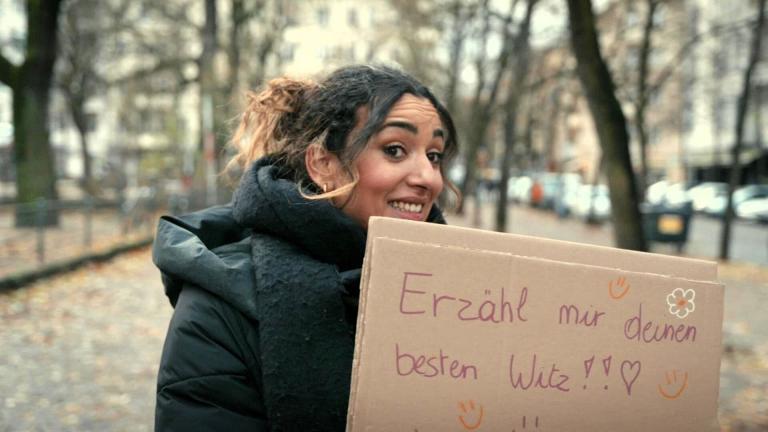 Erzähl mir deinen
besten Witz!! ♡